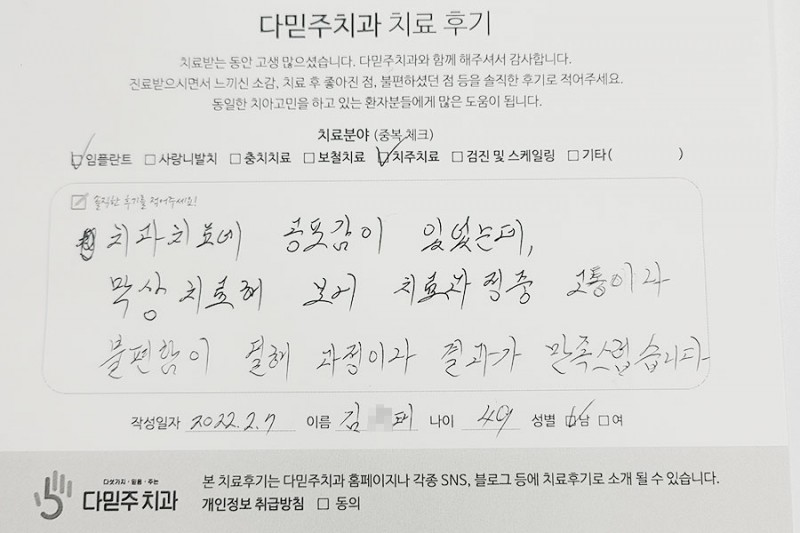 다믿주치과 치료 후기
치료받는 동안 고생 많으셨습니다. 다믿주치과와 함께 해주셔서 감사합니다.
진료받으시면서 느끼신 소감, 치료 후 좋아진 점, 불편하셨던 점 등을 솔직한 후기로 적어주세요.
동일한 치아고민을 하고 있는 환자분들에게 많은 도움이 됩니다.
치료분야 (중복 체크)
임플란트 사랑니발치 충치치료 보철치료 치주치료 검진 및 스케일링 기타( )
솔직한 후기를 적어주세요!
치과치료에 공포감이 있었는데,
막상 치료해 보니 치료과정중 고통이나
불편함이 덜해 과정이나 결과가 만족스럽습니다
작성일자 2022.2.7 이름 김 나이 49 성별 남 여
다섯가지·믿음·주는
다믿주치과
본 치료후기는 다믿주치과 홈페이지나 각종 SNS, 블로그 등에 치료후기로 소개 될 수 있습니다.
개인정보 취급방침 동의